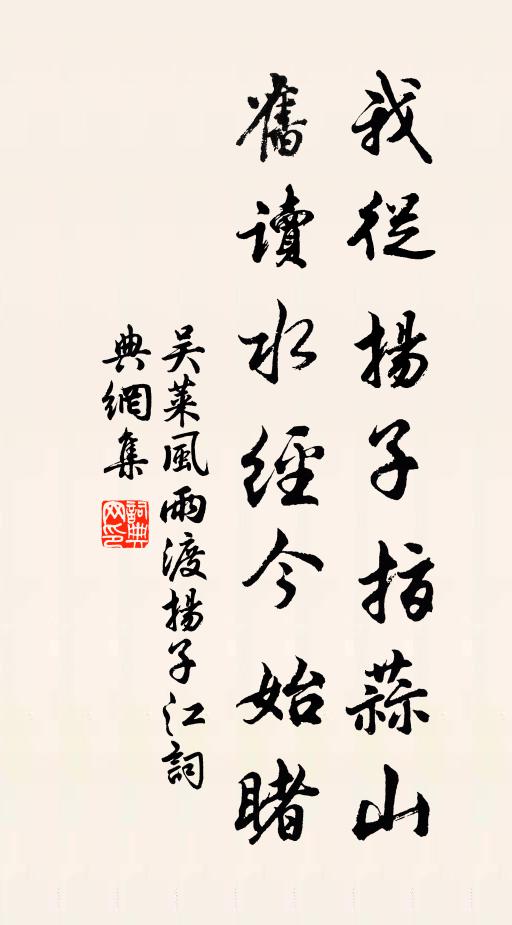 我從揚子指蒜山
舊讀水經今始睹
吴萊風雨渡揚子江詞
典網集
詞典
网印